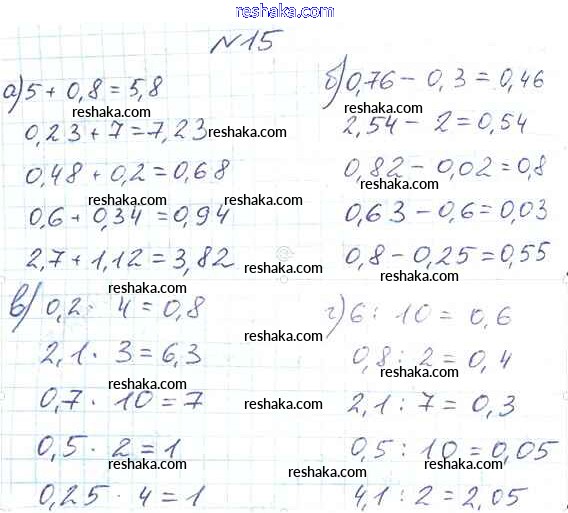 www.reshaka.com
№15
а) 5 + 0,8 = 5,8
reshaka.com
0,23 + 7 = 7,23
reshaka.com
0,48 + 0,2 = 0,68
reshaka.com
reshaka.com
0,6 + 0,34 = 0,94
2,7 + 1,12 = 3,82
reshaka.com
б) 0,76 - 0,3 = 0,46
reshaka.com
2,54 - 2 = 0,54
0,82 - 0,02 = 0,8
reshaka.com
0,63 - 0,6 = 0,03
0,8 - 0,25 = 0,55
reshaka.com
в) 0,2 · 4 = 0,8
reshaka.com
2,1 · 3 = 6,3
reshaka.com
0,7 · 10 = 7
reshaka.com
0,5 · 2 = 1
reshaka.com
0,25 · 4 = 1
г) 6 : 10 = 0,6
reshaka.com
0,8 : 2 = 0,4
reshaka.com
2,1 : 7 = 0,3
0,5 : 10 = 0,05
reshaka.com
4,1 : 2 = 2,05